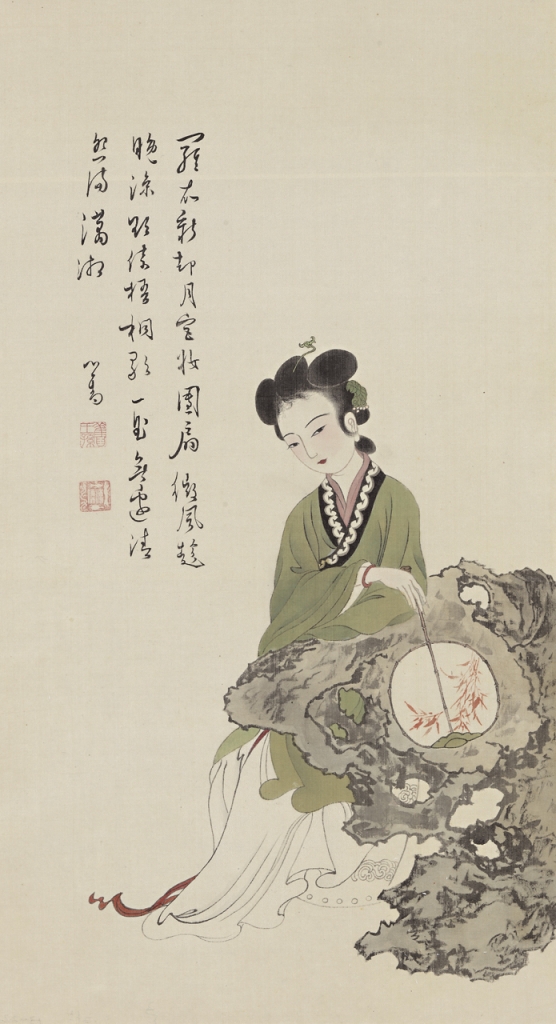 羅衣新却月宮妝團扇微風趁
晚涼倚梧桐影一無邊清
怨滿瀟湘
心畬
舊王孫